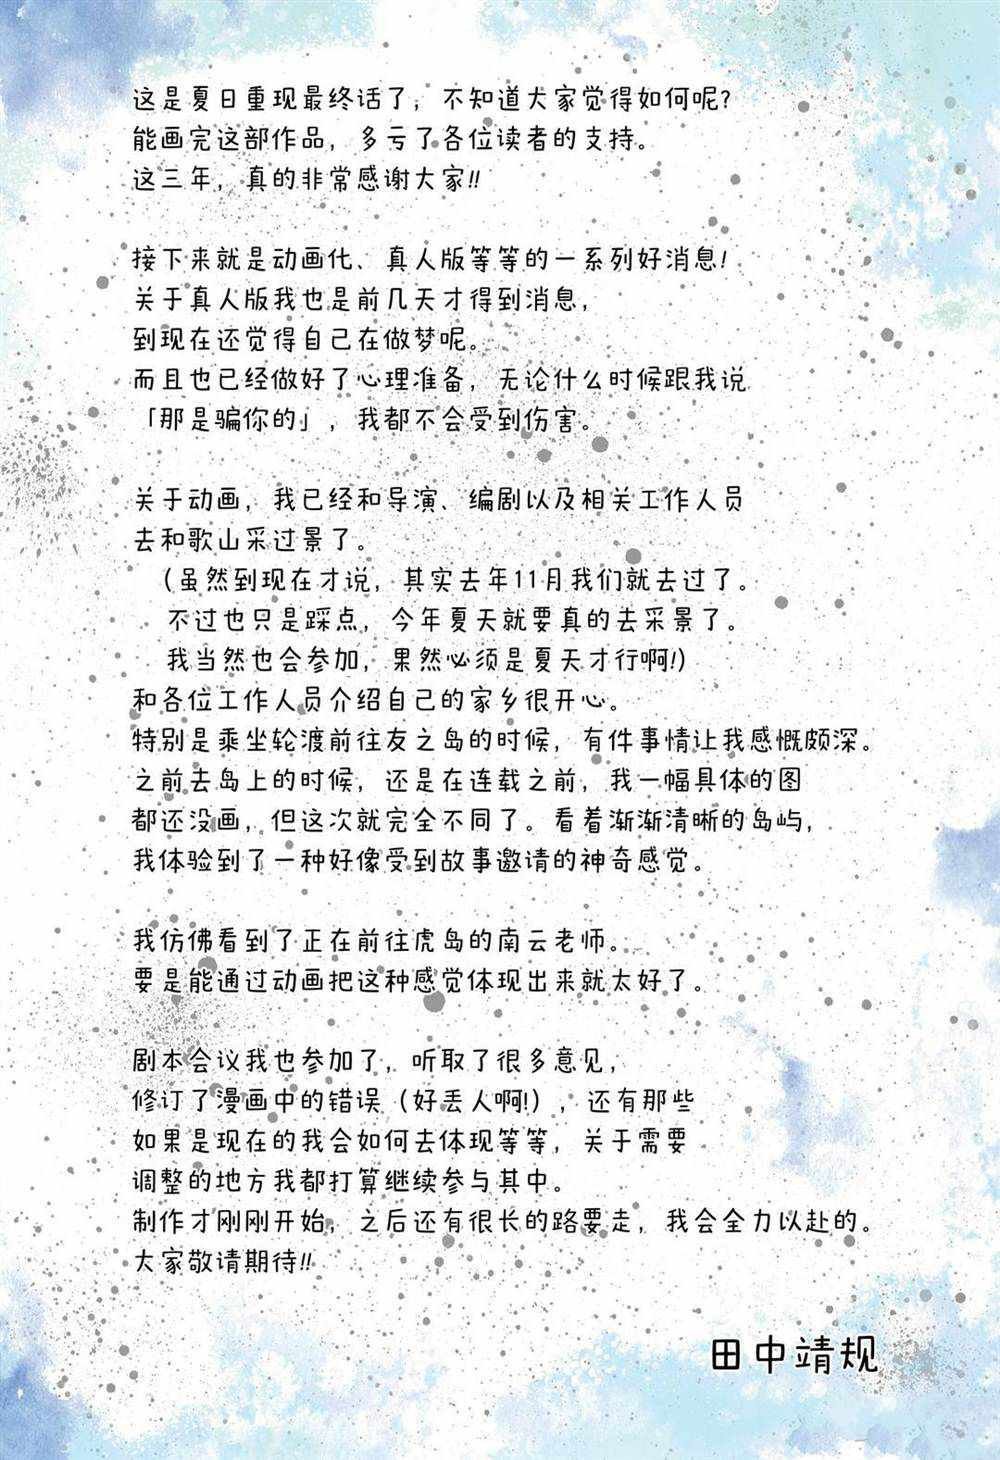 这是夏日重现最终话了，不知道大家觉得如何呢？
能画完这部作品，多亏了各位读者的支持。
这三年，真的非常感谢大家!!
接下来就是动画化、真人版等等的一系列好消息!
关于真人版我也是前几天才得到消息，
到现在还觉得自己在做梦呢。
而且也已经做好了心理准备，无论什么时候跟我说
「那是骗你的」，我都不会受到伤害。
关于动画，我已经和导演、编剧以及相关工作人员
去和歌山采过景了。
（虽然到现在才说，其实去年11月我们就去过了。
不过也只是踩点，今年夏天就要真的去采景了。
我当然也会参加，果然必须是夏天才行啊!）
和各位工作人员介绍自己的家乡很开心。
特别是乘坐轮渡前往友之岛的时候，有件事情让我感慨颇深。
之前去岛上的时候，还是在连载之前，我一幅具体的图
都还没画，但这次就完全不同了。看着渐渐清晰的岛屿，
我体验到了一种好像受到故事邀请的神奇感觉。
我仿佛看到了正在前往虎岛的南云老师。
要是能通过动画把这种感觉体现出来就太好了。
剧本会议我也参加了，听取了很多意见，
修订了漫画中的错误（好丢人啊!），还有那些
如果是现在的我会如何去体现等等，关于需要
调整的地方我都打算继续参与其中。
制作才刚刚开始，之后还有很长的路要走，我会全力以赴的。
大家敬请期待!!
田中靖规